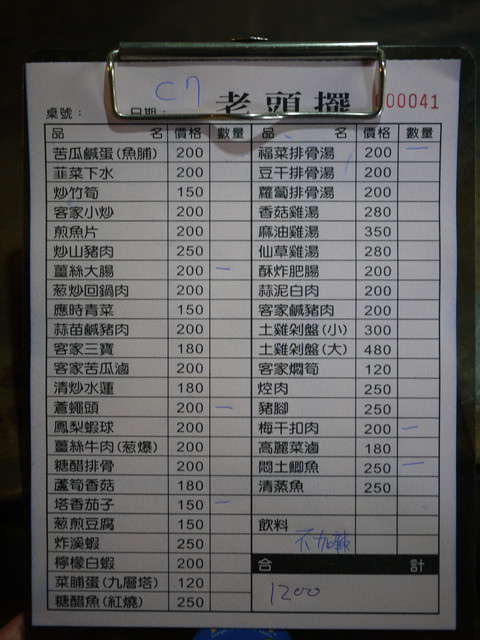 C7
老頭擺
000041
桌號：
日期：
品名 價格 數量
苦瓜鹹蛋(魚脯) 200
韮菜下水 200
炒竹筍 150
客家小炒 200
煎魚片 200
炒山豬肉 250
薑絲大腸 200 一
葱炒回鍋肉 200
應時青菜 150
蒜苗鹹豬肉 200
客家三寶 180
客家苦瓜滷 200
清炒水蓮 180
蒼蠅頭 200 一
鳳梨蝦球 200
薑絲牛肉(葱爆) 200
糖醋排骨 200
蘆筍香菇 180
塔香茄子 150 一
葱煎豆腐 150
炸溪蝦 250
檸檬白蝦 200
菜脯蛋(九層塔) 120
糖醋魚(紅燒) 250
品名 價格 數量
福菜排骨湯 200 一
豆干排骨湯 200
蘿蔔排骨湯 200
香菇雞湯 280
麻油雞湯 350
仙草雞湯 280
酥炸肥腸 200
蒜泥白肉 200
客家鹹豬肉 200
土雞剁盤(小) 300
土雞剁盤(大) 480
客家燜筍 120
焢肉 250
豬腳 250
梅干扣肉 200 一
高麗菜滷 180
悶土鯽魚 250 一
清蒸魚 250
飲料
不加辣
合計
1200